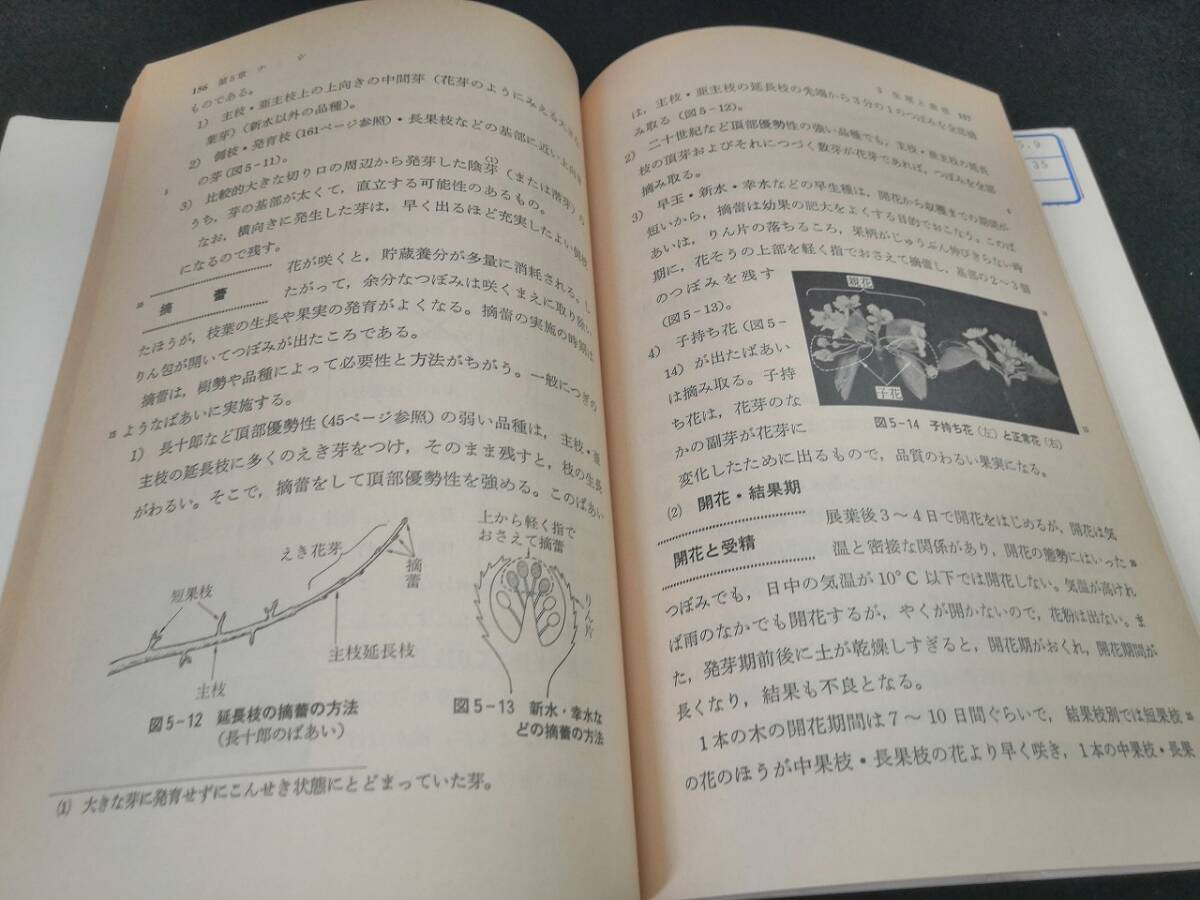 156 第5章 ナ シ
ものである。
1) 主枝・亜主枝上の上向きの中間芽(花芽のようにみえる大きな
葉芽)(新水以外の品種)。
2) 側枝・発育枝(161ページ参照)・長果枝などの基部に近い上向き
の芽(図5-11)。
3) 比較的大きな切り口の周辺から発芽した陰芽(1)(または潜芽)の
うち,芽の基部が太くて,直立する可能性のあるもの。
なお,横向きに発生した芽は,早く出るほど充実したよい側枝
になるので残す。
摘 蕾
花が咲くと,貯蔵養分が多量に消耗される。し
たがって,余分なつぼみは咲くまえに取り除い
たほうが,枝葉の生長や果実の発育がよくなる。摘蕾の実施の時期は
りん包が開いてつぼみが出たころである。
摘蕾は,樹勢や品種によって必要性と方法がちがう。一般につぎの
ようなばあいに実施する。
1) 長十郎など頂部優勢性(45ページ参照)の弱い品種は,主枝・亜
主枝の延長枝に多くのえき芽をつけ,そのまま残すと,枝の生長
がわるい。そこで,摘蕾をして頂部優勢性を強める。このばあい
えき花芽
摘蕾
短果枝
主枝延長枝
主枝
図5-12 延長枝の摘蕾の方法
(長十郎のばあい)
上から軽く指で
おさえて摘蕾
りん片
図5-13 新水・幸水な
どの摘蕾の方法
(1) 大きな芽に発育せずにこんせき状態にとどまっていた芽。
3 生育と栽培 157
は,主枝・亜主枝の延長枝の先端から3分の1のつぼみを全部摘
み取る(図5-12)。
2) 二十世紀など頂部優勢性の強い品種でも,主枝・亜主枝の延長
枝の頂芽およびそれにつづく数芽が花芽であれば,つぼみを全部
摘み取る。
3) 早玉・新水・幸水などの早生種は,開花から収穫までの期間が
短いから,摘蕾は幼果の肥大をよくする目的でおこなう。このば
あいは,りん片の落ちるころ,果柄がじゅうぶん伸びきらない時
期に,花そうの上部を軽く指でおさえて摘蕾し,基部の2~3個
のつぼみを残す
(図5-13)。
4) 子持ち花(図5-
14)が出たばあい
は摘み取る。子持
ち花は,花芽のな
かの副芽が花芽に
変化したために出るもので,品質のわるい果実になる。
親花
子花
図5-14 子持ち花(左)と正常花(右)
(2) 開花・結果期
開花と受精
展葉後3~4日で開花をはじめるが,開花は気
温と密接な関係があり,開花の態勢にはいった
つぼみでも,日中の気温が10°C以下では開花しない。気温が高けれ
ば雨のなかでも開花するが,やくが開かないので,花粉は出ない。ま
た,発芽期前後に土が乾燥しすぎると,開花期がおくれ,開花期間が
長くなり,結果も不良となる。
1本の木の開花期間は7~10日間ぐらいで,結果枝別では短果枝
の花のほうが中果枝・長果枝の花より早く咲き,1本の中果枝・長果